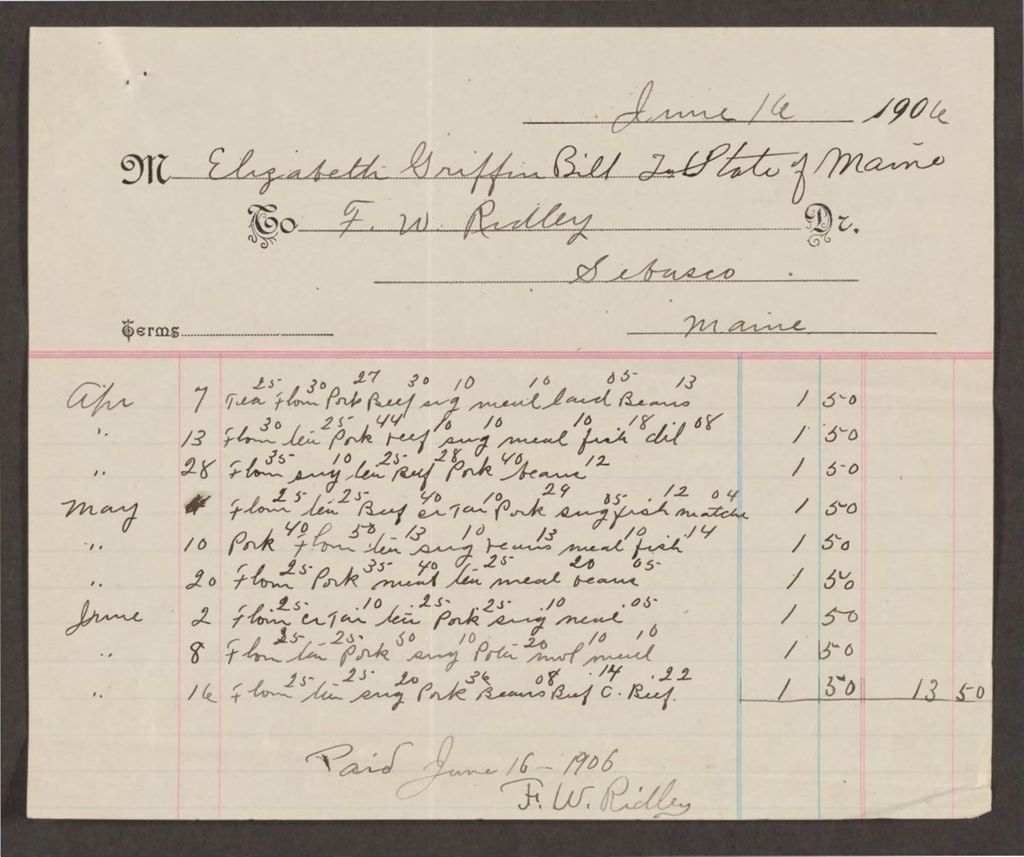 June 16 1906
M Elizabeth Griffin Bill To State of Maine
To F. W. Ridley Dr.
Sebasco
Terms Maine
25 30 27 30 10 10 05 13
Apr 7 Tea Flour Pork Beef sug meal lard Beans 1 50
30 25 44 10 10 10 18 08
" 13 Flour tea Pork beef sug meal fish oil 1 50
35 10 25 28 40 12
" 28 Flour sug tea Beef Pork beans 1 50
25 25 40 10 29 05 12 04
May 4 Flour tea Beef Pork sug fish matche 1 50
40 50 13 10 13 10 14
" 10 Pork Flour tea sug beans meal fish 1 50
25 35 40 25 20 05
" 20 Flour Pork meat tea meal beans 1 50
25 10 25 25 10 05
June 2 Flour tea Pork sug meal 1 50
25 25 50 10 20 10 10
" 8 Flour tea Pork sug mol meal 1 50
25 25 20 36 08 14 22
" 16 Flour tea sug Pork Beans Beef C. Beef. 1 50 13 50
Paid June 16 - 1906
F. W. Ridley